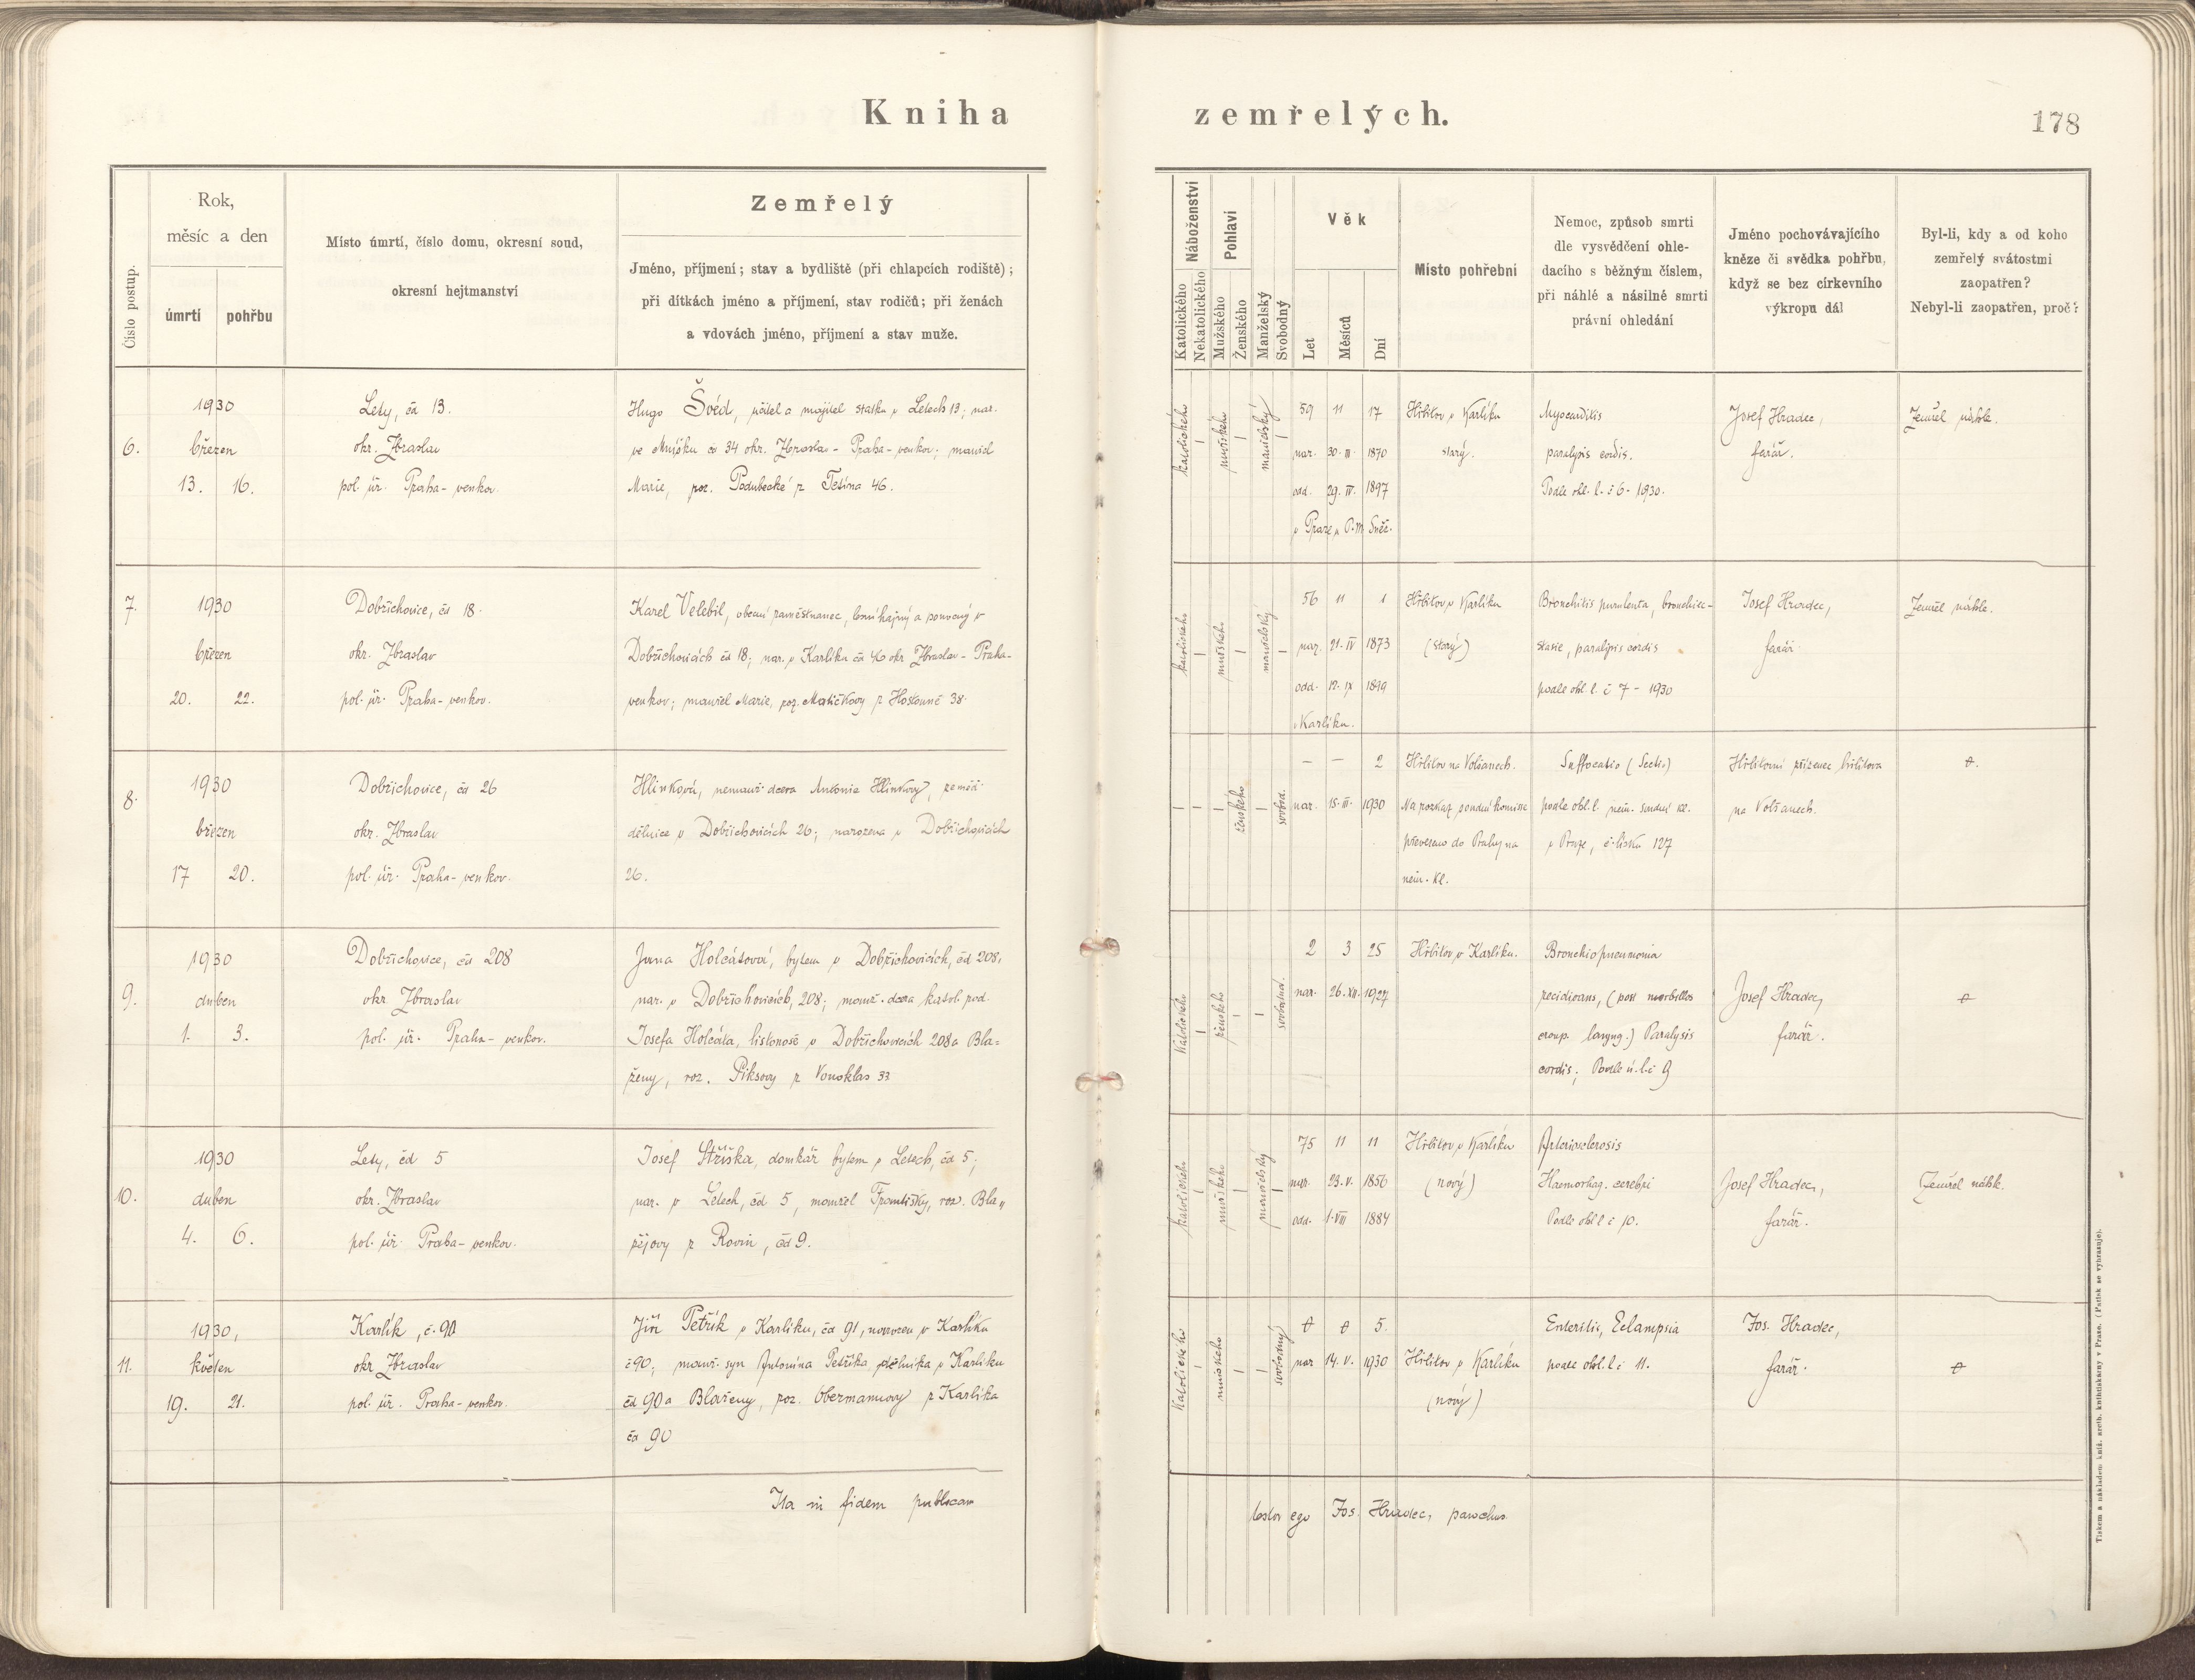 Kniha zemřelých.
178
Číslo postup.
Rok,
měsíc a den
úmrtí
pohřbu
Místo úmrtí, číslo domu, okresní soud,
okresní hejtmanství
Zemřelý
Jméno, příjmení; stav a bydliště (při chlapcích rodiště);
při dítkách jméno a příjmení, stav rodičů; při ženách
a vdovách jméno, příjmení a stav muže.
Náboženství
Katolického
Nekatolického
Pohlaví
Mužského
Ženského
Manželský
Svobodný
Věk
Let
Měsíců
Dní
Místo pohřební
Nemoc, způsob smrti
dle vysvědčení ohle-
dacího s běžným číslem,
při náhlé a násilné smrti
právní ohledání
Jméno pochovávajícího
kněze či svědka pohřbu,
když se bez církevního
výkropu dál
Byl-li, kdy a od koho
zemřelý svátostmi
zaopatřen?
Nebyl-li zaopatřen, proč?
6.
1930
březen
13. 16.
Lety, čd 13.
okr. Zbraslav
pol. úř. Praha-venkov.
Hugo Švéd, a majitel statku v Letech 13; nar.
ve Mníšku čd 34 okr. Zbraslav - Praha-venkov; manžel
Marie, roz. z Tetína 46.
katolického
mužského
manželský
59 11 17
nar. 30. III. 1870
odd. 29. IV. 1897
v Praze u P. M. Sněž.
Hřbitov v Karlíku
starý.
Myocarditis
paralysis cordis.
Podle ohl. l. č 6 - 1930.
Josef Hradec,
farář.
Zemřel náhle.
7.
1930
březen
20. 22.
Dobřichovice, čd 18.
okr. Zbraslav
pol. úř. Praha-venkov.
Karel Velebil, obecní zaměstnanec, lesní hajný a v
Dobřichovicích čd 18; nar. v Karlíku čd 40 okr. Zbraslav - Praha-
venkov; manžel Marie, roz. Matičkovy z Hostouně 38.
katolického
mužského
manželský
56 11 1
nar. 21. IV 1873
odd. 12. IX 1899
v Karlíku.
Hřbitov v Karlíku
(starý)
Bronchitis purulenta, bronchiec-
stasie, paralysis cordis
podle ohl. l. č 7 - 1930
Josef Hradec,
farář.
Zemřel náhle.
8.
1930
březen
17 20.
Dobřichovice, čd 26
okr. Zbraslav
pol. úř. Praha-venkov.
Hlinková, nemanž. dcera Antonie Hlinkovy, zeměd.
dělnice v Dobřichovicích 26; narozena v Dobřichovicích
26.
ženského
svobod.
— — 2
nar. 15. III. 1930
Hřbitov na Volšanech.
Na rozkaz soudní komise
převezeno do Prahy na
něm. kl.
Suffocatio (Sectio)
podle ohl. l. něm. soudní kl.
v Praze, č. lístku 127
Hřbitovní zřízenec hřbitova
na Volšanech.
9.
1930
duben
1. 3.
Dobřichovice, čd 208
okr. Zbraslav
pol. úř. Praha-venkov.
Jana Holcátová, bytem v Dobřichovicích, čd 208,
nar. v Dobřichovicích, 208; manž. dcera katol. rod.
Josefa Holcáta, listonoše v Dobřichovicích 208 a Bla=
ženy, roz. Piksovy z Vonoklas 33
Katolického
ženského
svobodná.
2 3 25
nar. 26. XII. 1927
Hřbitov v Karlíku.
Bronchiopneumonia
recidivans, (post morbillos
croup. laryng.) Paralysis
cordis; Podle ú. l. č 9
Josef Hradec,
farář.
10.
1930
duben
4. 6.
Lety, čd 5
okr. Zbraslav
pol. úř. Praha-venkov.
Josef Stříška, domkář bytem v Letech, čd 5;
nar. v Letech, čd 5, manžel Františky, roz. Bla„
žejovy z Rovin, čd 9.
katolického
mužského
manželský
75 11 11
nar. 23. V. 1856
odd. 1. VII 1884
Hřbitov v Karlíku
(nový)
Arteriosclerosis
Haemorhag. cerebri
Podle ohl l č 10.
Josef Hradec,
farář.
Zemřel náhle.
11.
1930,
květen
19. 21.
Karlík, č. 90
okr Zbraslav
pol. úř. Praha-venkov.
Jiří Petřík v Karlíku, čd 91, narozen v Karlíku
č 90; manž. syn Antonína Petříka, dělníka v Karlíku
čd 90 a Blaženy, roz. Obermanovy z Karlíka
čd 90
Katolického
mužského
svobodný
5.
nar 14. V. 1930
Hřbitov v Karlíku
(nový)
Enteritis, Eclampsia
podle ohl. l č 11.
Jos. Hradec,
farář.
Ita in fidem publicam
testor ego Jos. Hradec, parochus.
Tiskem a nákladem kníž. arcib. knihtiskárny v Praze. (Patisk se vyhrazuje).